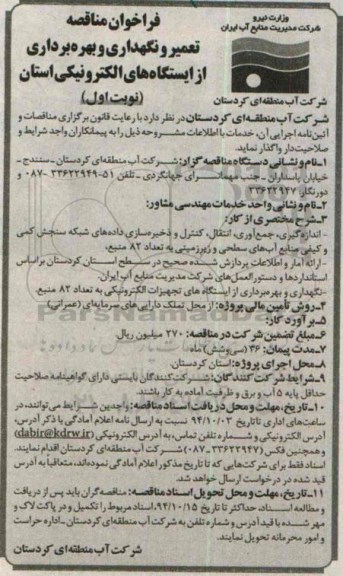 وزارت نیرو
شرکت مدیریت منابع آب ایران
فراخوان مناقصه
تعمیر و نگهداری و بهره‌برداری
از ایستگاه‌های الکترونیکی استان
(نوبت اول)
شرکت آب منطقه‌ای کردستان
شرکت آب منطقه‌ای کردستان در نظر دارد با رعایت قانون برگزاری مناقصات و
آئین‌نامه اجرایی آن، خدمات با اطلاعات مشروحه ذیل را به پیمانکاران واجد شرایط و
صلاحیت‌دار واگذار نماید.
۱-نام و نشانی دستگاه مناقصه گزار: شرکت آب منطقه‌ای کردستان - سنندج -
خیابان پاسداران - جنب مهمانسرای جهانگردی - تلفن ۵۱-۳۳۶۲۲۹۴۹-۰۸۷
دورنگار: ۳۳۶۲۲۹۴۷
۲-نام و نشانی واحد خدمات مهندسی مشاور:
۳-شرح مختصری از کار:
- اندازه‌گیری، جمع‌آوری، انتقال، کنترل و ذخیره‌سازی داده‌های شبکه سنجش کمی
و کیفی منابع آب‌های سطحی و زیرزمینی به تعداد ۸۲ منبع.
- ارائه آمار و اطلاعات پردازش شده صحیح در سطح استان کردستان براساس
استانداردها و دستورالعمل‌های شرکت مدیریت منابع آب ایران.
-نگهداری و بهره‌برداری از ایستگاه های تجهیزات الکترونیکی به تعداد ۸۲ منبع.
۴-روش تأمین مالی پروژه: از محل تملک دارایی‌های سرمایه‌ای (عمرانی)
۵-برآورد کار:
۶-مبلغ تضمین شرکت در مناقصه: ۲۷۰ میلیون ریال
۷-مدت پیمان: ۳۶ (سی‌وشش) ماه
۸-محل اجرای پروژه: استان کردستان.
۹-شرایط شرکت کنندگان: شرکت کنندگان بایستی دارای گواهینامه صلاحیت
حداقل پایه ۵ آب و برق و ظرفیت آماده به کار باشند.
۱۰-تاریخ، مهلت و محل دریافت اسناد مناقصه: واجدین شرایط می‌توانند، در
ساعت‌های اداری تا تاریخ ۹۴/۱۰/۰۳ نسبت به ارسال نامه اعلام آمادگی با ذکر آدرس،
آدرس الکترونیکی و شماره تلفن تماس، به آدرس الکترونیکی (dabir@kdrw.ir)
و همچنین فکس (۳۳۶۲۲۹۴۷-۰۸۷) شرکت آب منطقه‌ای کردستان اقدام نمایند.
اسناد فقط برای شرکت‌هایی که تا تاریخ مذکور اعلام آمادگی نموده‌اند، متعاقباً به آدرس
قید شده در درخواست ارسال خواهد شد.
۱۱-تاریخ، مهلت و محل تحویل اسناد مناقصه: مناقصه‌گران باید پس از دریافت
و مطالعه اسناد، حداکثر تا تاریخ ۹۴/۱۰/۱۵، اسناد مربوط را تکمیل و در پاکت لاک و
مهر شده با قید آدرس و شماره تلفن به شرکت آب منطقه‌ای کردستان - اداره حراست
و امور محرمانه تحویل نمایند.
شرکت آب منطقه‌ای کردستان